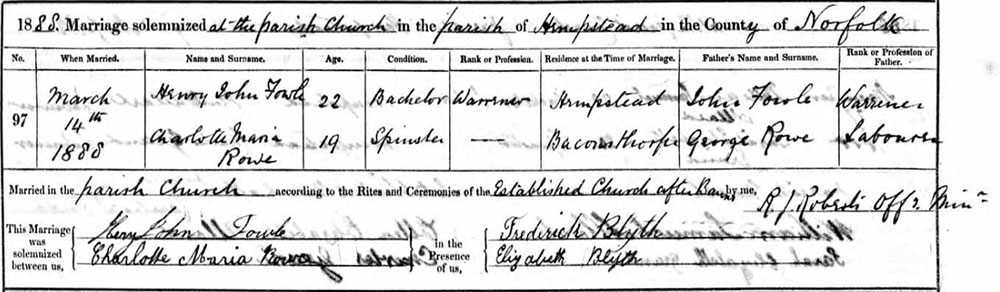 1888. Marriage solemnized at the parish Church in the parish of Hempstead in the County of Norfolk
No. When Married. Name and Surname. Age. Condition. Rank or Profession. Residence at the Time of Marriage. Father's Name and Surname. Rank or Profession of Father.
97 March 14th 1888 Henry John Fowle 22 Bachelor Warrener Hempstead John Fowle Warrener
Charlotte Maria Rowe 19 Spinster — Baconsthorpe George Rowe Labourer
Married in the parish Church according to the Rites and Ceremonies of the Established Church after Banns by me, R J Roberts Off. Min.
This Marriage was solemnized between us, Henry John Fowle
Charlotte Maria Rowe
in the Presence of us, Frederick Blyth
Elizabeth Blyth